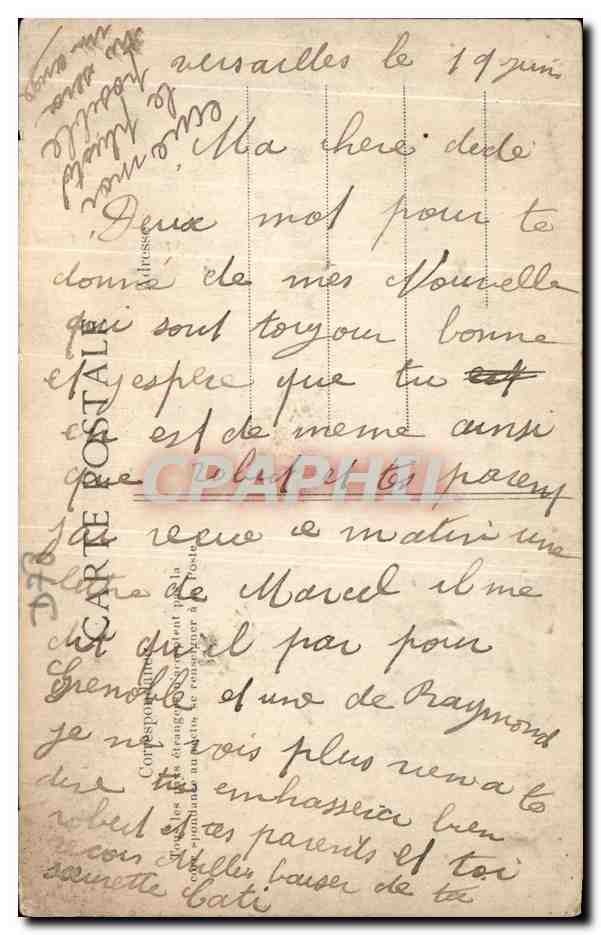 versailles le 19 juin
Ma chere dede
Deux mot pour te
donné de mes Nouvelle
qui sont toujour bonne
et j'espere que tu est
en est de meme ainsi
que robert et tes parent
j'ai recue ce matin une
letre de Marcel il me
dit qu'il par pour
Grenoble et une de Raymond
je ne vois plus rien a te
dire tu embrassera bien
robert et tes parents et toi
recois Milles baiser de ta
soeurette Cati
envoi moi
le photo
possible
CARTE POSTALE
Correspondance
Adresse
Tous les pays étrangers n'acceptent pas la
correspondance au recto, se renseigner à la Poste
D78
CPAPHIL